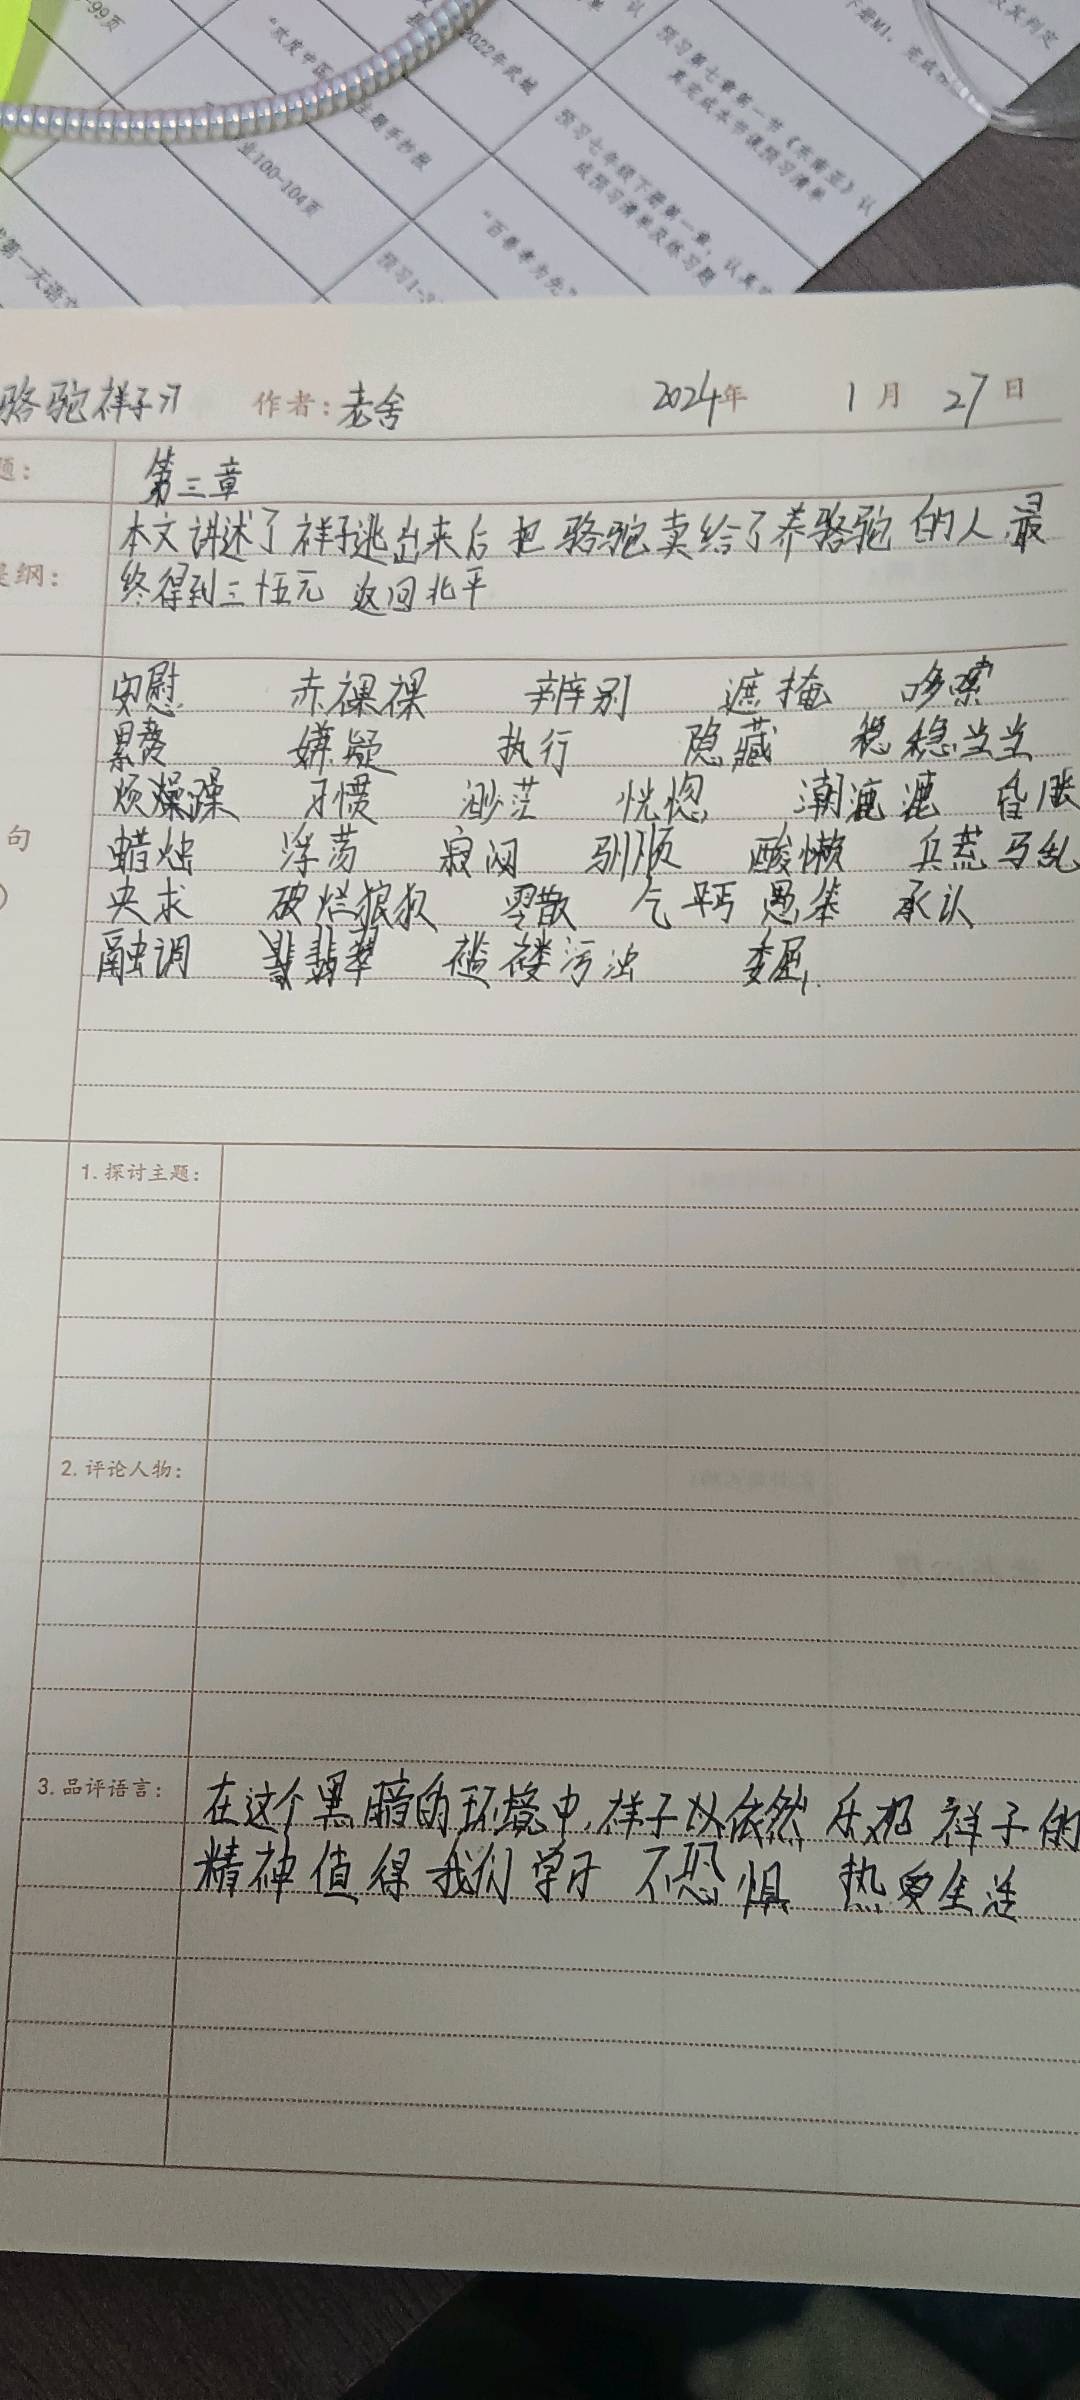 -99页
"武度中国
主题手抄报
2022年武城
预习第七章第一节《东南亚》认
真完成本节课预习清单
业100-104页
预习七年级下册第一章，认真完
成预习清单及练习题
"百善孝为先"
预习1-3
第一天语文
骆驼祥子 作者：老舍 2024年 1月 27日
题： 第三章
提纲： 本文讲述了祥子逃出来后把骆驼卖给了养骆驼的人最
终得到三十五元 返回北平
安慰 赤裸裸 辨别 遮掩 哆嗦
累赘 嫌疑 执行 隐藏 稳稳当当
烦燥躁 习惯 渺茫 恍惚 潮漉漉
句 蜡烛 浮荡 寂闷 驯顺 酸懒 兵荒马乱
央求 破烂狼狈 零散 乞丐 愚笨 承认
融调 翡翠 褴褛污浊 委屈
1.探讨主题：
2.评论人物：
3.品评语言： 在这个黑暗的环境中，祥子以依然乐观 祥子的
精神值得我们学习 不恐惧 热爱生活